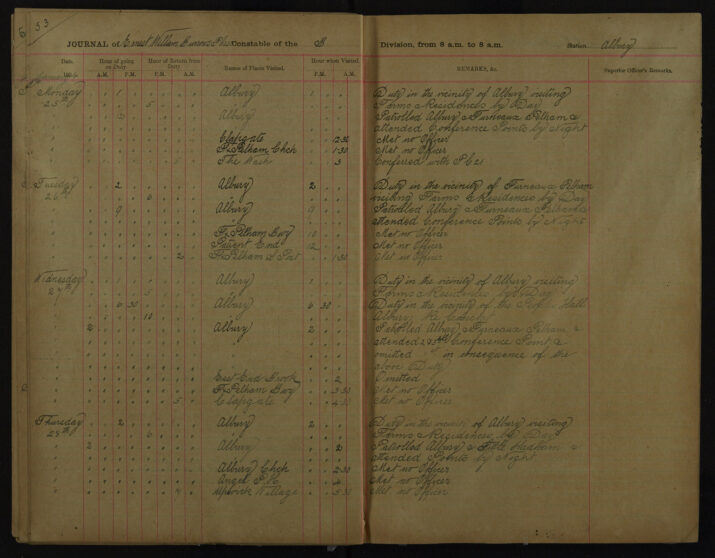 53
JOURNAL of Ernest William Burrows Constable of the B Division, from 8 a.m. to 8 a.m. Station Albury
Date. Hour of going on Duty Hour of Return from Duty Names of Places Visited. Hour when Visited. REMARKS, &c. Superior Officer's Remarks.
A.M. P.M. P.M. A.M. P.M. A.M.
Monday 1 Albury 1 Duty in the vicinity of Albury visiting
25th 5 Farms & Residences by Day
Albury Patrolled Albury & Furneaux Pelham &
attended Conference Points by Night
Clapgate 12.30 Met no Officer
Fx Pelham Chch 1.30 Met no Officer
The Wash 3 Conferred with PC
Tuesday 2 Albury 2 Duty in the vicinity of Furneaux Pelham
26th visiting Farms & Residences by Day
9 Albury 9 Patrolled Albury & Furneaux Pelham &
attended Conference Points by Night
Fx Pelham Bory 10 Met no Officer
Patient End 12 Met no Officer
2 Fx Pelham 1.30 Met no Officer
Wednesday Albury Duty in the vicinity of Albury visiting
27th 5 Farms & Residences by Day
6 30 Albury 6 30 Duty in the vicinity of the Hall
10 Albury
2 Albury 2 Patrolled Albury & Furneaux Pelham &
attended 2 Conference Points &
omitted in consequence of the
above Duty
East End Brook 2 Omitted
Fx Pelham Bory 3.30 Met no Officer
5 Clapgate 4.30 Met no Officer
Thursday 2 Albury 2 Duty in the vicinity of Albury visiting
28th Farms & Residences by Day
2 Albury 2 Patrolled Albury & Little Hadham &
attended Points by Night
Albury Chch 2.30 Met no Officer
Angel P.H. 4 Met no Officer
Upwick Village 5.30 Met no Officer